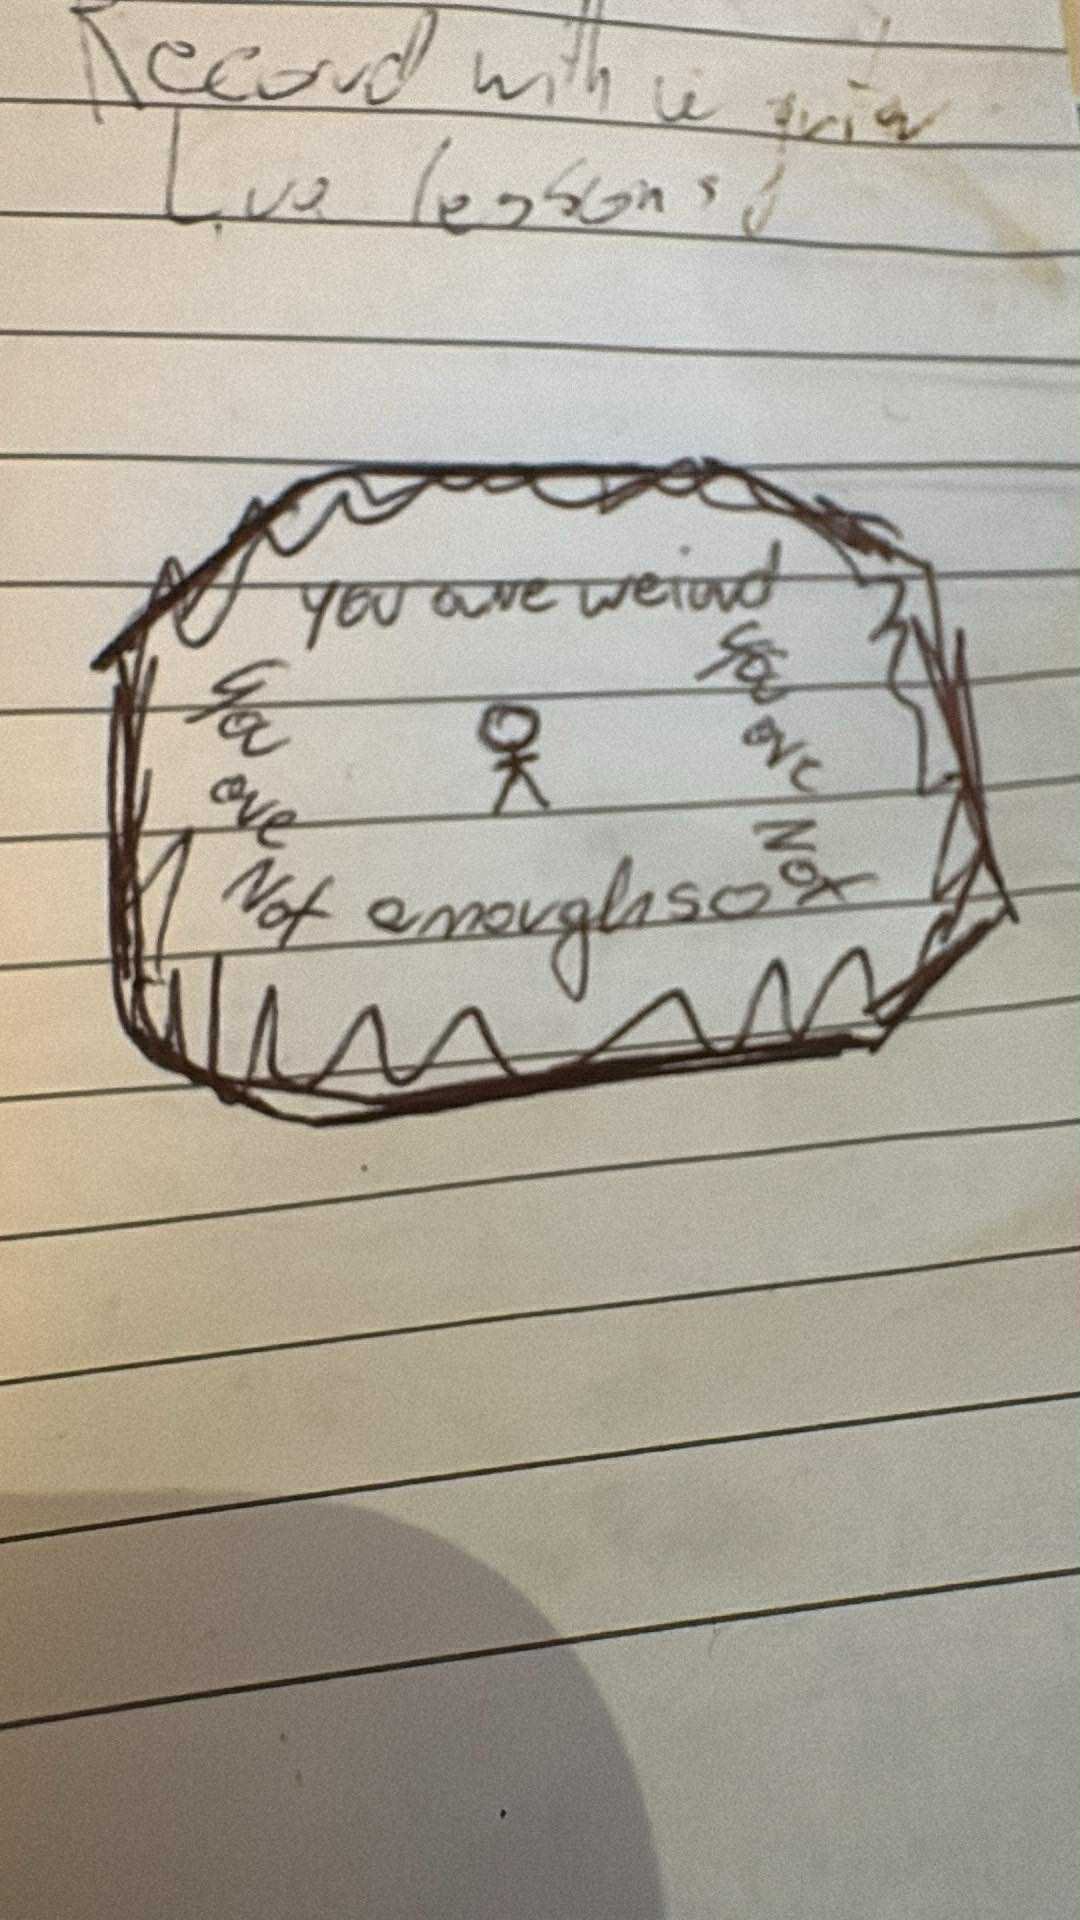 Record with
Live lessons
you are weird
You are Not enough
You are Not